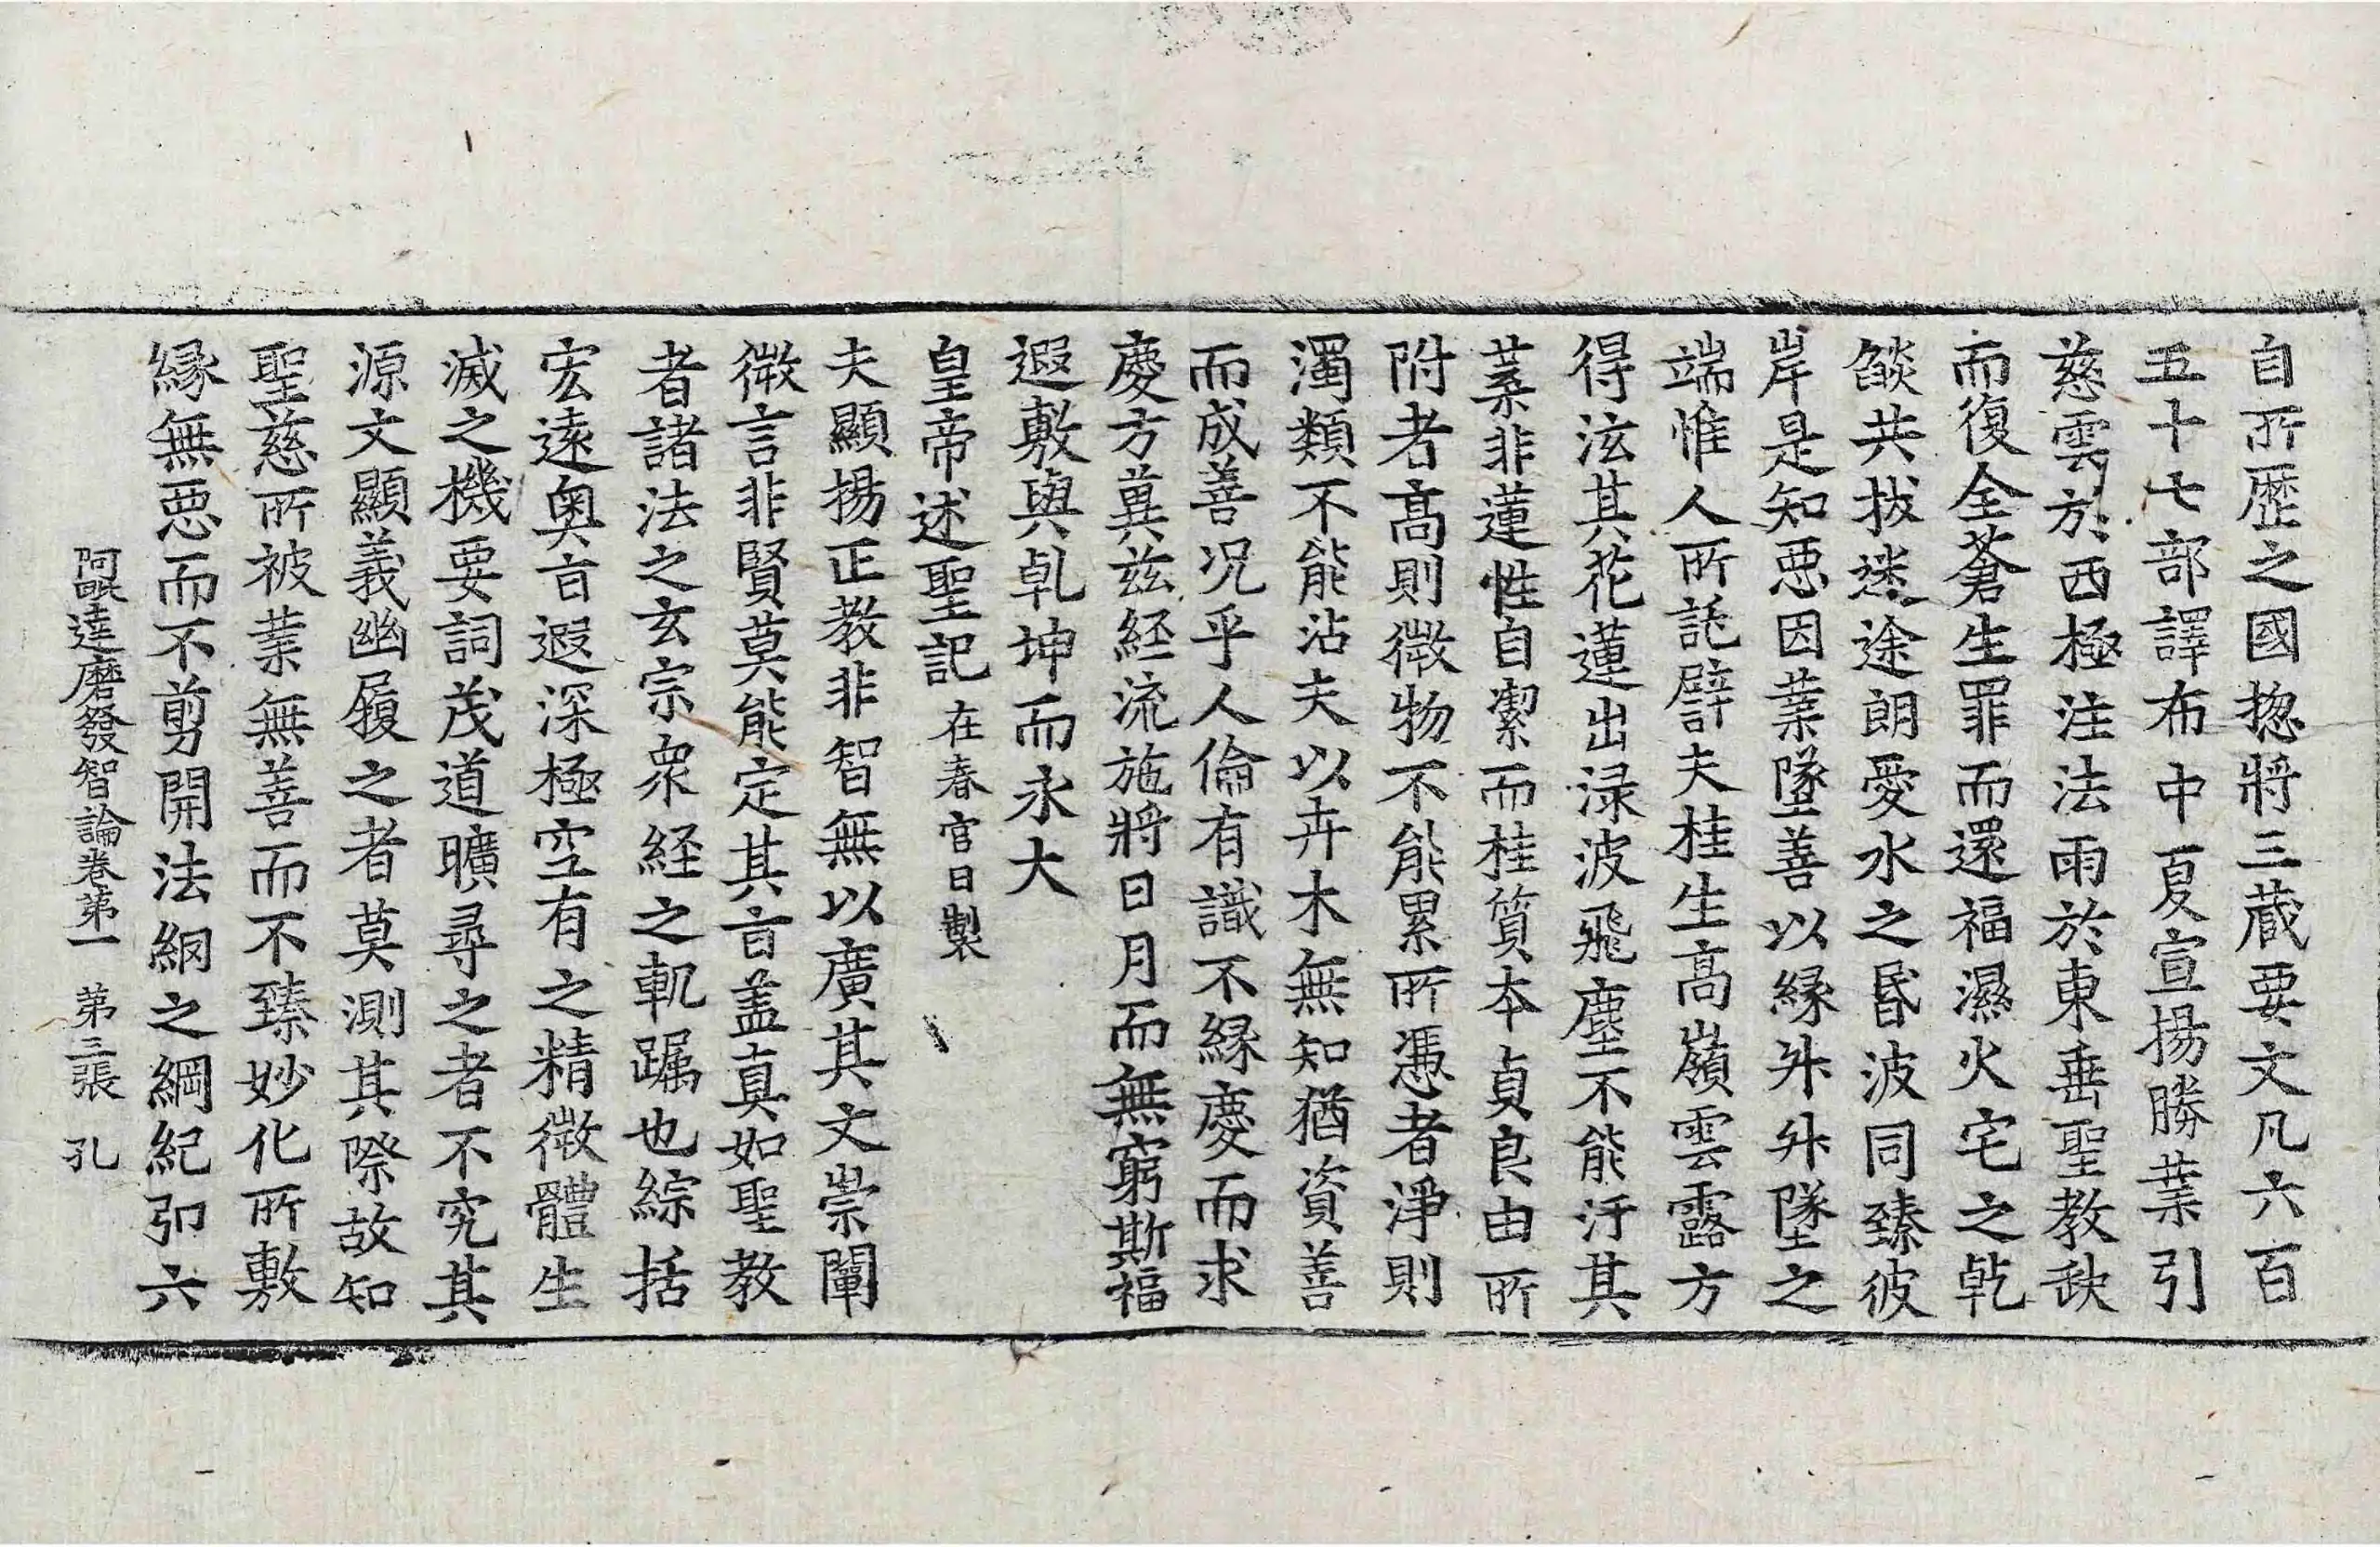 自所歷之國揔將三藏要文凡六百
五十七部譯布中夏宣揚勝業引
慈雲於西極注法雨於東垂聖教缺
而復全蒼生罪而還福濕火宅之乾
燄共拔迷途朗愛水之昏波同臻彼
岸是知惡因業墜善以緣昇昇墜之
端惟人所託譬夫桂生高嶺雲露方
得泫其花蓮出淥波飛塵不能汙其
葉非蓮性自潔而桂質本貞良由所
附者高則微物不能累所憑者淨則
濁類不能沾夫以卉木無知猶資善
而成善況乎人倫有識不緣慶而求
慶方冀茲經流施將日月而無窮斯福
遐敷與乹坤而永大
皇帝述聖記在春宮日製
夫顯揚正教非智無以廣其文崇闡
微言非賢莫能定其旨盖真如聖教
者諸法之玄宗衆経之軌躅也綜括
宏遠奧旨遐深極空有之精微體生
滅之機要詞茂道曠尋之者不究其
源文顯義幽履之者莫測其際故知
聖慈所被業無善而不臻妙化所敷
緣無惡而不剪開法網之綱紀引六
阿毗達磨發智論卷第一 第三張 孔